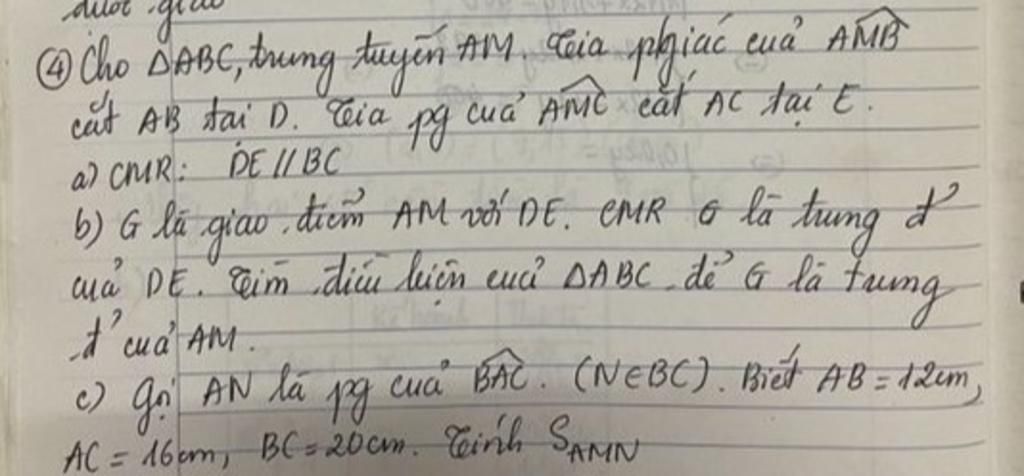 được giao
④ Cho ΔABC, trung tuyến AM. Tia phgiác của AMB
cắt AB tại D. Tia pg của AMC cắt AC tại E.
a) CMR: DE // BC
b) G là giao điểm AM với DE. CMR G là trung đ'
của DE. Tìm điều kiện của ΔABC để G là trung
đ' của AM.
c) Gọi AN là pg của BAC. (N∈BC). Biết AB = 12cm,
AC = 16cm, BC = 20cm. Tính S_AMN